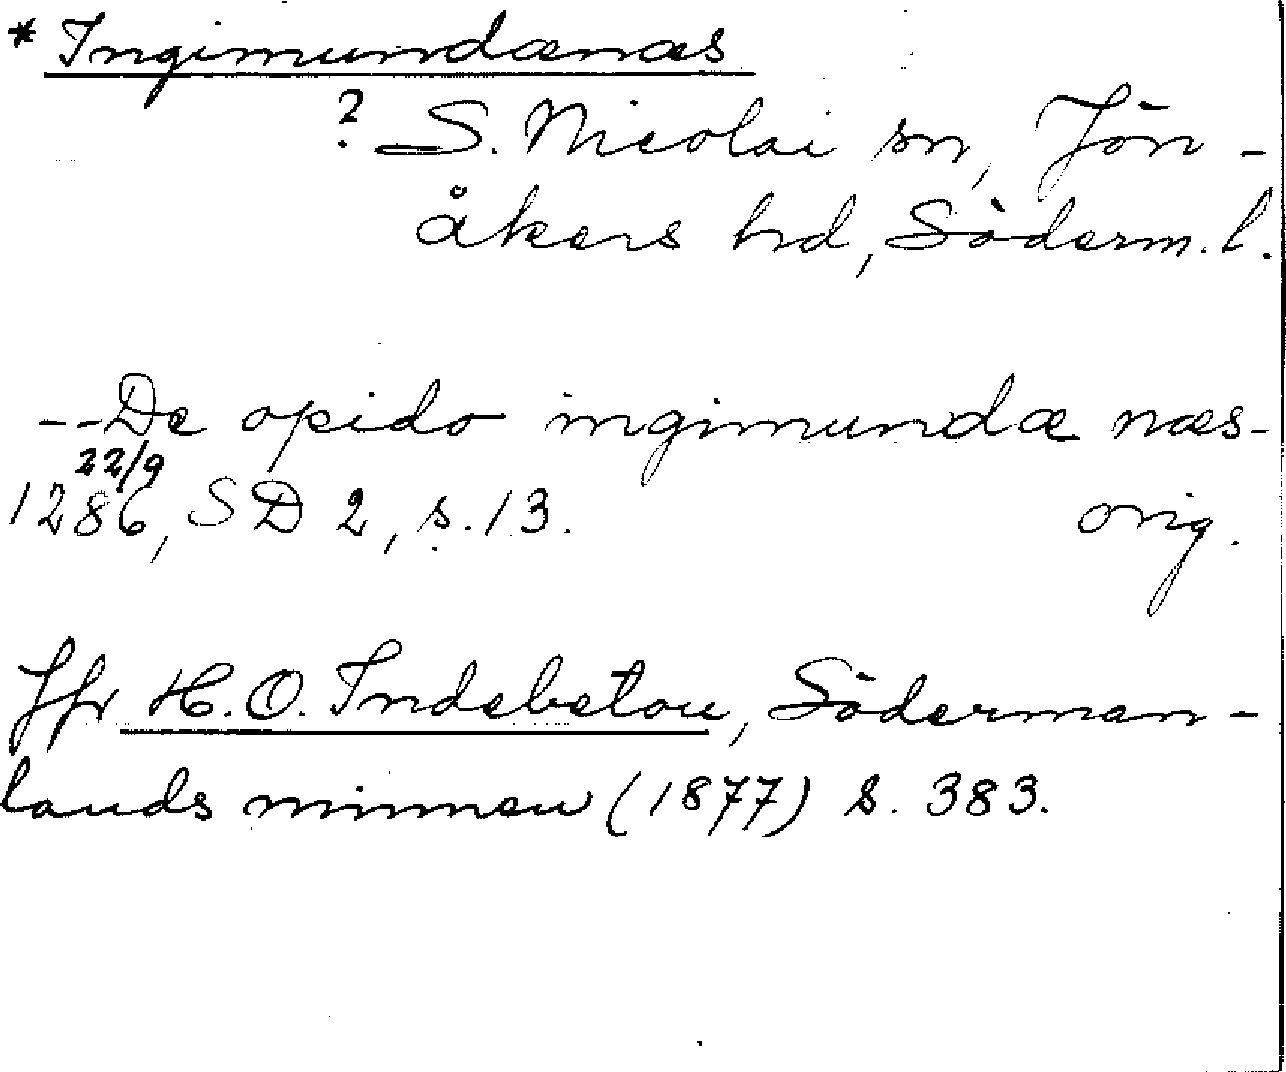 * Ingimundænæs
? S. Nicolai sn, Jön-
åkers hd, Söderm. l.
--De opido ingimundæ næs-
22/9
1286, SD 2, s. 13. orig.
Jfr H. O. Indebetou, Söderman-
lands minnen (1877) s. 383.